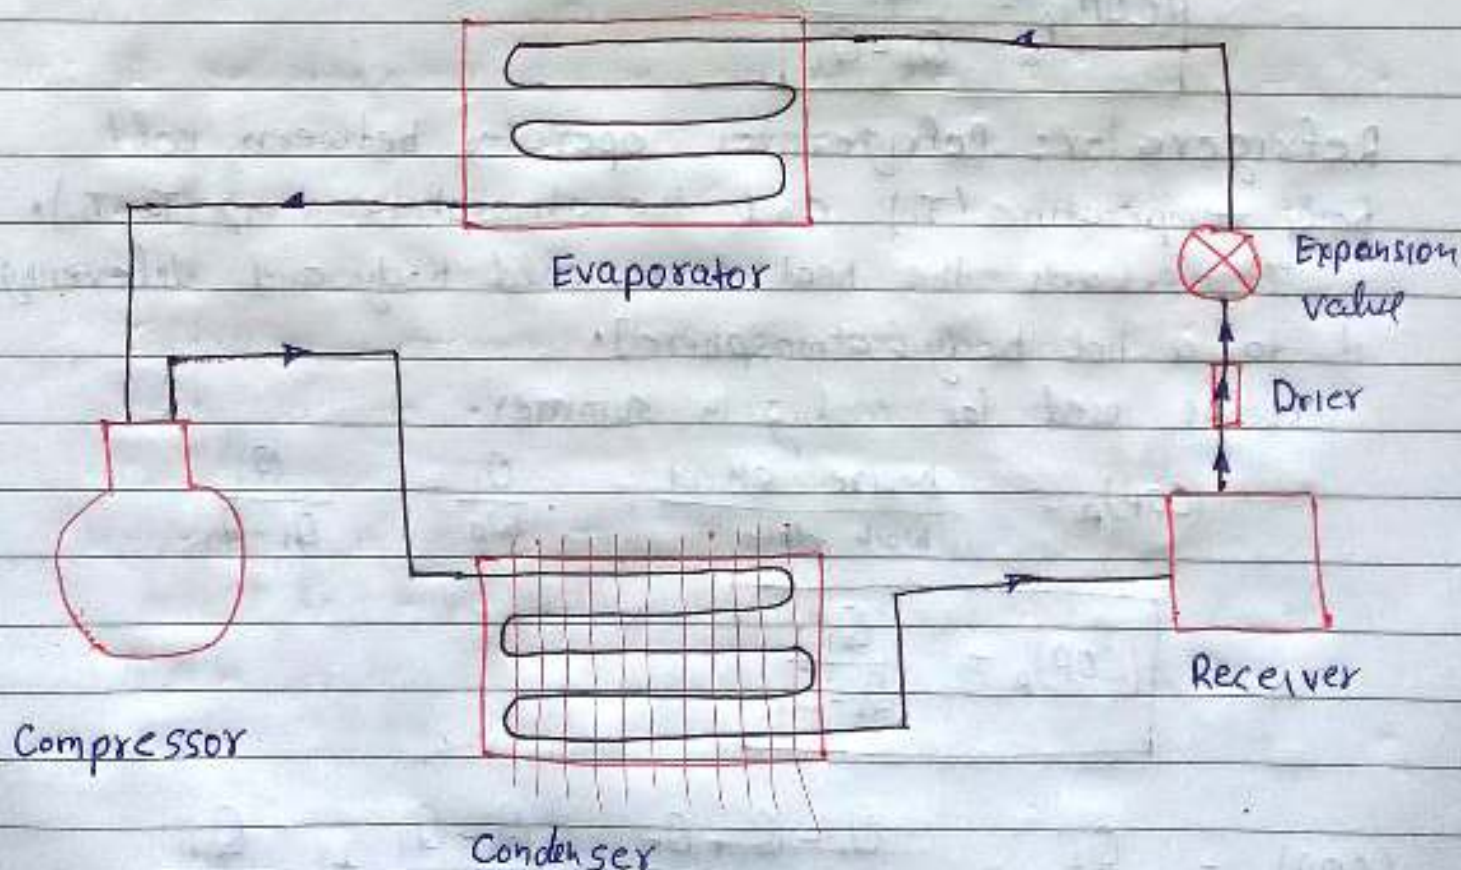 Evaporator
Expansion
value
Drier
Receiver
Compressor
Condenser